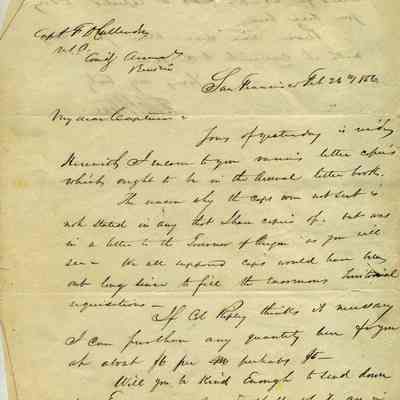 Capt F D Callender
U.S.
Comdg Arsenal
Benicia
San Francisco Feb 26th 186
My dear Captain
Yours of yesterday is recd
Herewith I enclose to you various letter copies
which ought to be in the Arsenal letter book.
The reason why the caps were not sent is
not stated in any that I have copies of. but was
in a letter to the Governor of Oregon as you will
see - We all supposed caps would have been
out long since to fill the enormous Territorial
requisitions -
If Col Ripley thinks it necessary
I can purchase any quantity here for you
at about per M perhaps
Will you be kind enough to send down